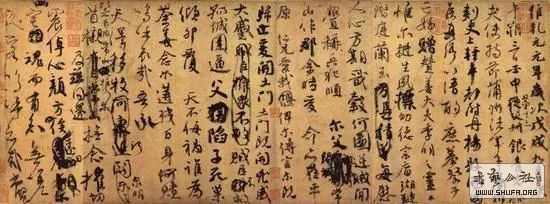 維乾元元年歲次戊戌九月庚
午朔三日壬申第十三叔銀青光祿
夫使持節蒲州諸軍事蒲州
刺史上輕車都尉丹陽縣開國
侯真卿以清酌庶羞祭于
亡姪贈贊善大夫季明之靈曰
惟爾挺生夙標幼德宗廟瑚璉
階庭蘭玉每慰
人心方期戩穀何圖逆賊閒
釁稱兵犯順爾父竭誠
常山作郡余時受命亦在平
原仁兄愛我俾爾傳言爾既
歸止爰開土門土門既開凶威
大蹙賊臣不救
孤城圍逼父陷子死巢
傾卵覆天不悔禍誰為
荼毒念爾遘殘百身何贖
嗚呼哀哉吾承
天澤移牧河關泉明
首櫬及茲同還撫念摧切
震悼心顏方俟
魂而有知無嗟
WWW.SHUFA.ORG